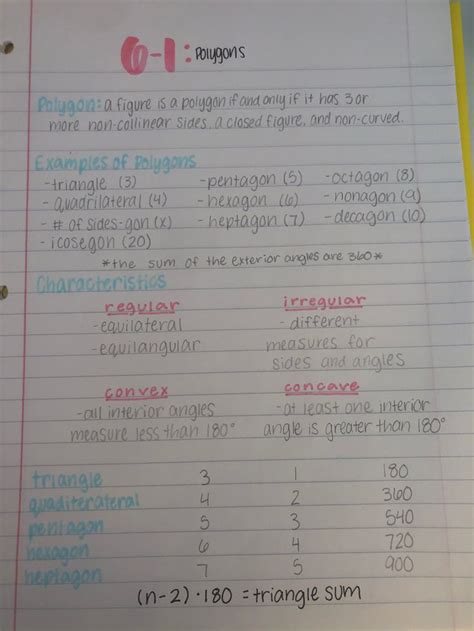 6-1: Polygons
Polygon: a figure is a polygon if and only if it has 3 or
more non-collinear sides, a closed figure, and non-curved.
Examples of Polygons
-triangle (3) -pentagon (5) -octagon (8)
-quadrilateral (4) -hexagon (6) -nonagon (9)
-# of sides-gon (x) -heptagon (7) -decagon (10)
-icosegon (20)
*the sum of the exterior angles are 360*
Characteristics
regular irregular
-equilateral -different
-equilangular measures for
sides and angles
convex concave
-all interior angles -at least one interior
measure less than 180° angle is greater than 180°
triangle 3 1 180
quaditerateral 4 2 360
pentagon 5 3 540
hexagon 6 4 720
heptagon 7 5 900
(n-2)·180 = triangle sum